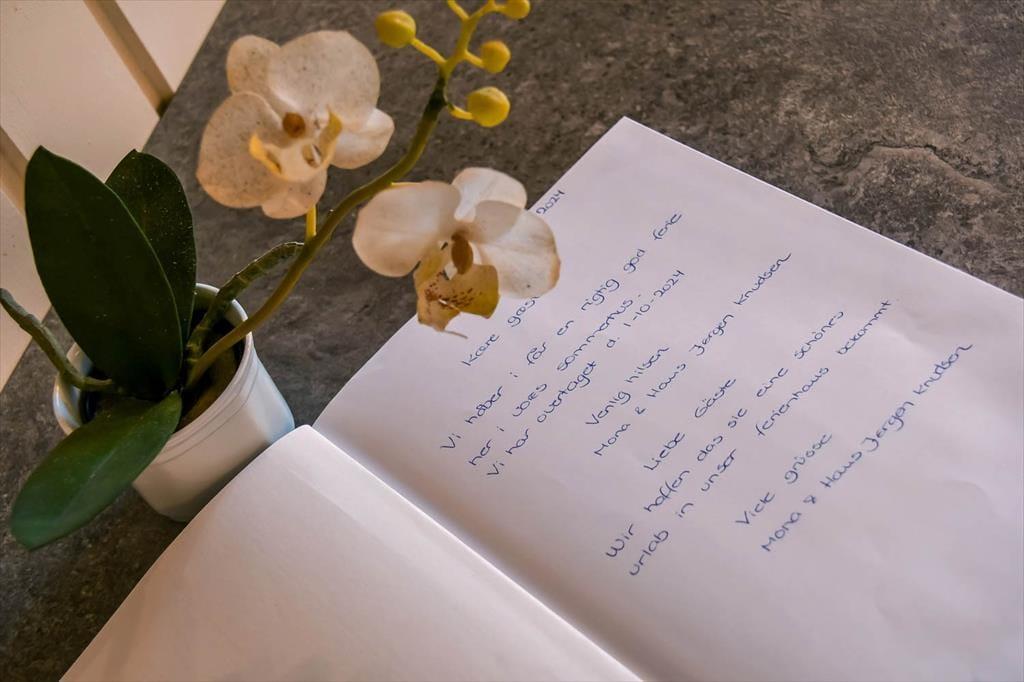 2024
Kære gæs
Vi håber i får en rigtig god ferie
her i vores sommerhus.
Vi har overtaget d. 1-10-2024
Venlig hilsen
Mona & Hans Jørgen Knudsen
Liebe Gäste
Wir hoffen das sie eine schönes
urlab in unser ferienhaus bekommt
Viele grüsse
Mona & Hans Jørgen Knudsen